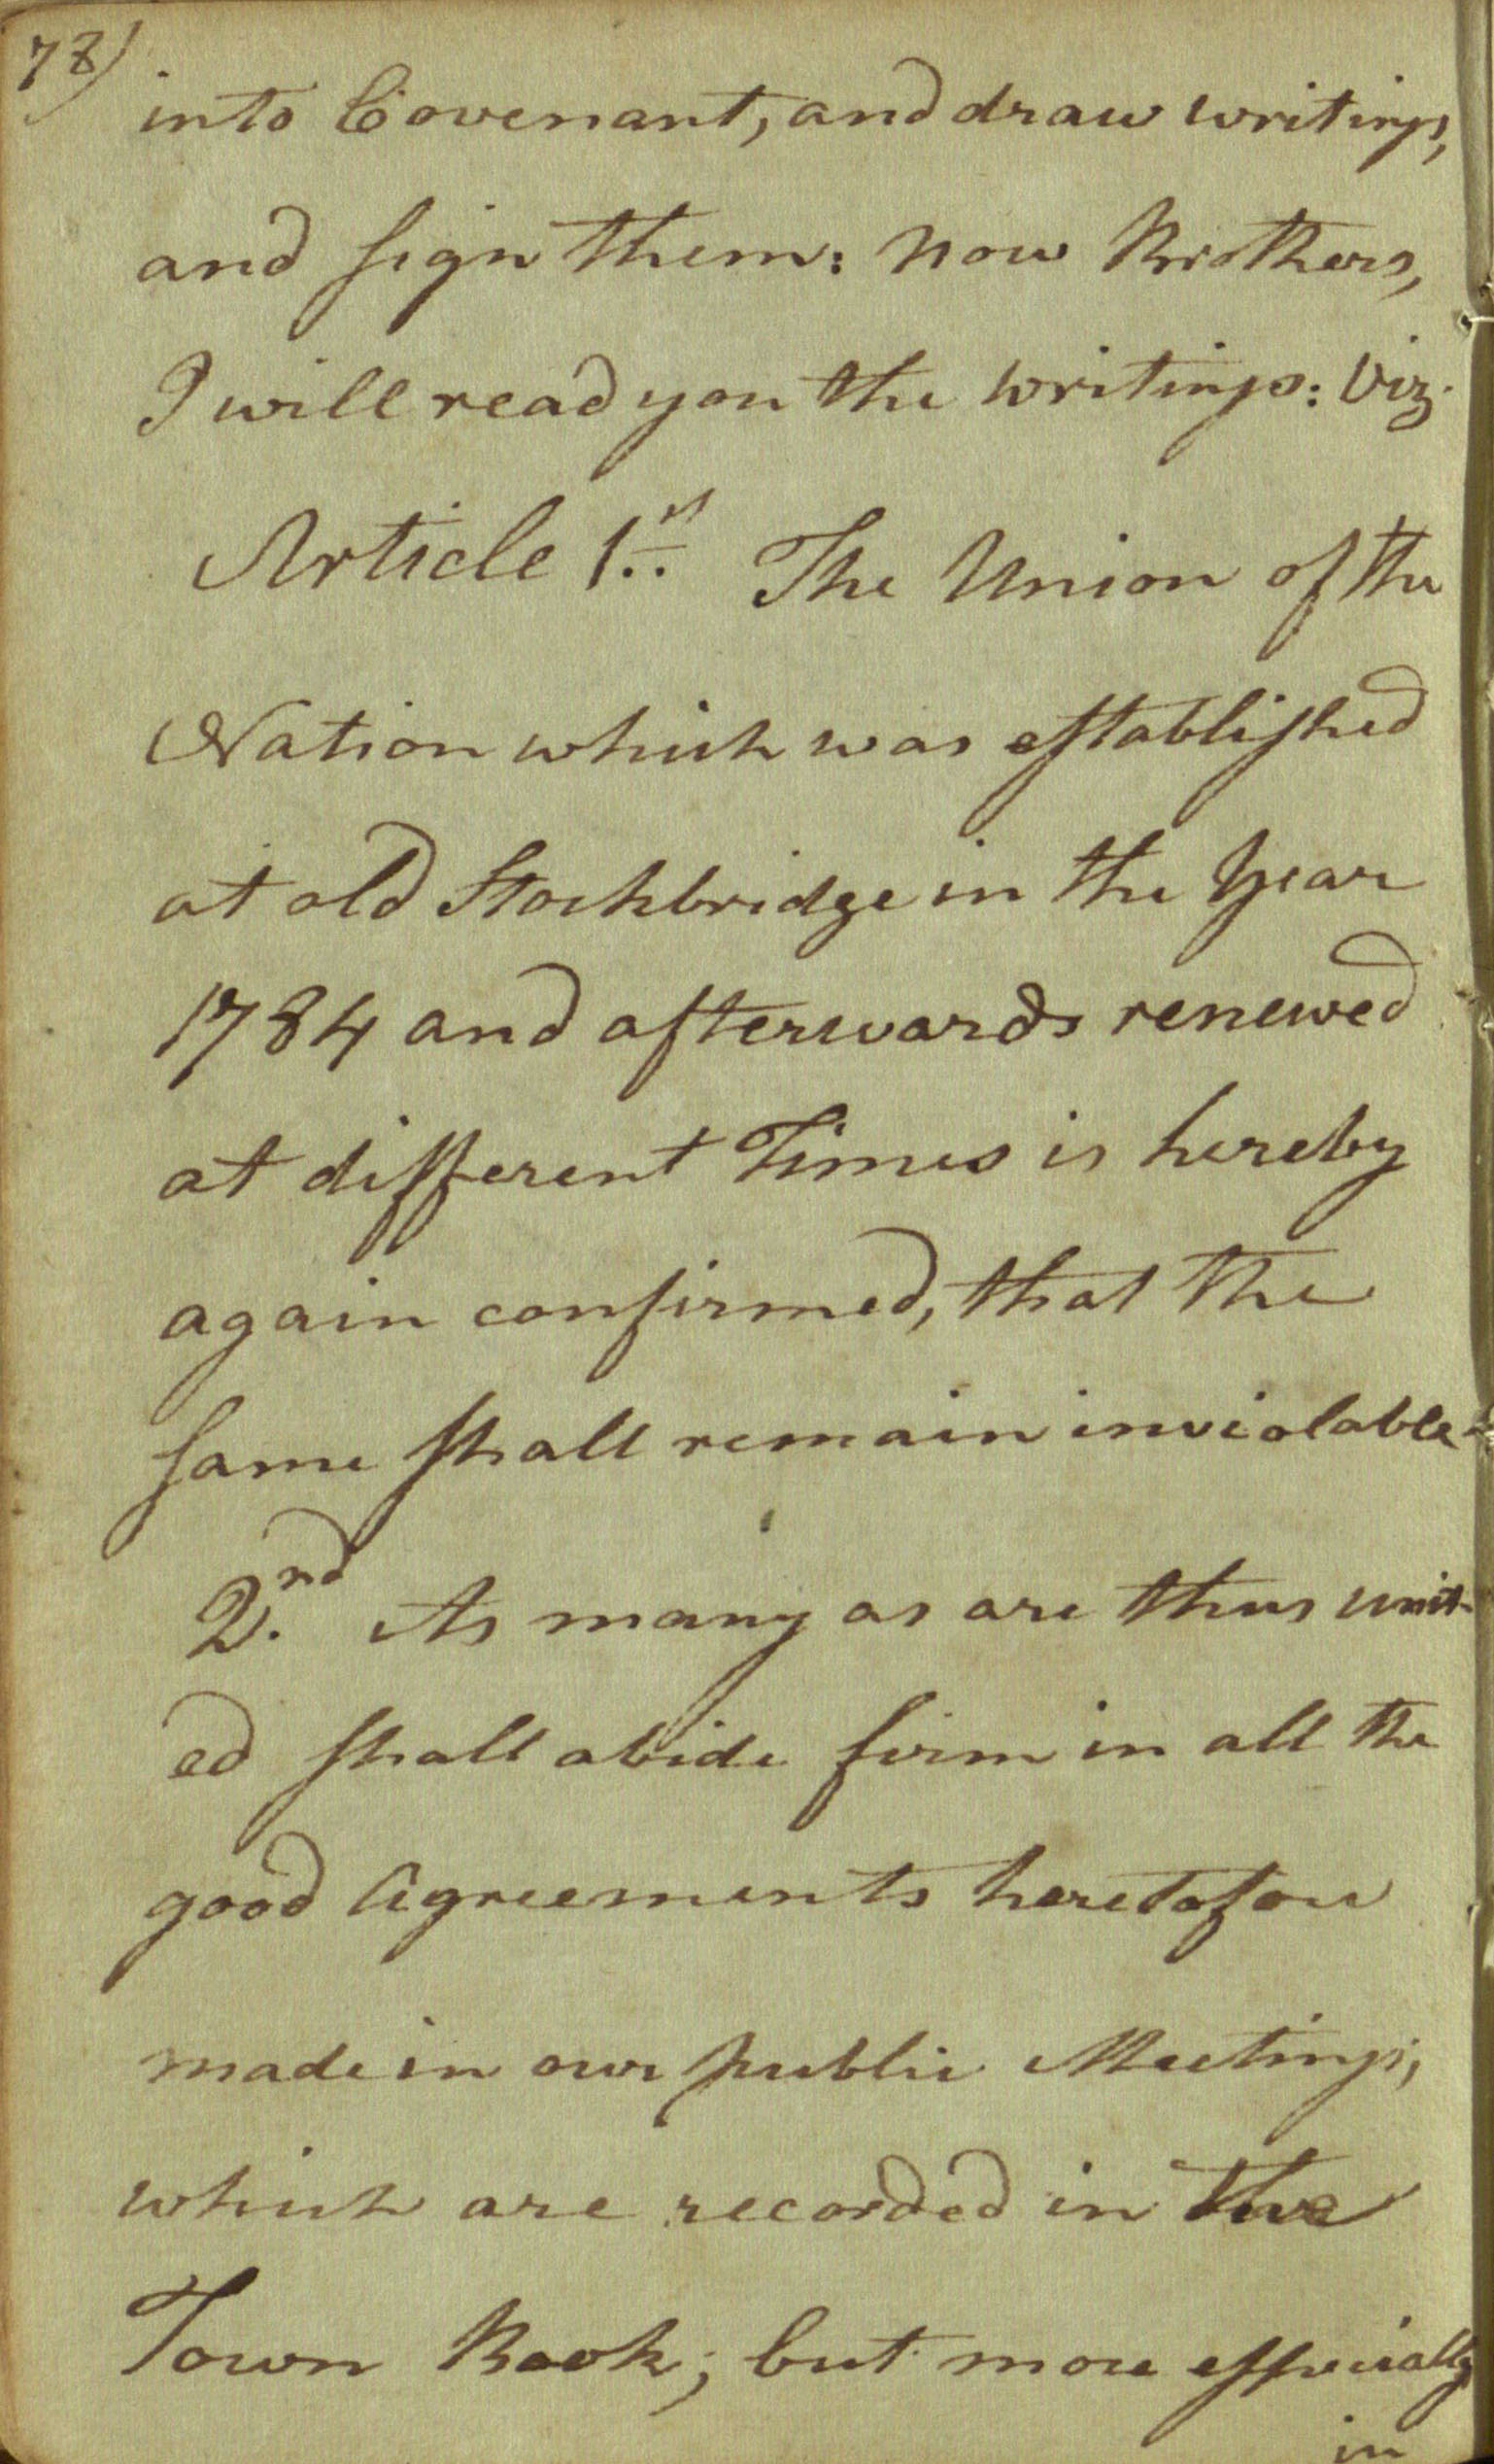 78)
into Covenant, and draw writings,
and sign them: now Brothers,
I will read you the writings: Viz.
Article 1.st The Union of the
Nation which was established
at old Stockbridge in the Year
1784 and afterwards renewed
at different Times is hereby
again confirmed, that the
same shall remain inviolable.
2.nd As many as are thus unit-
ed shall abide firm in all the
good Agreements heretofore
made in our public Meetings,
which are recorded in the
Town Book; but more especially
in